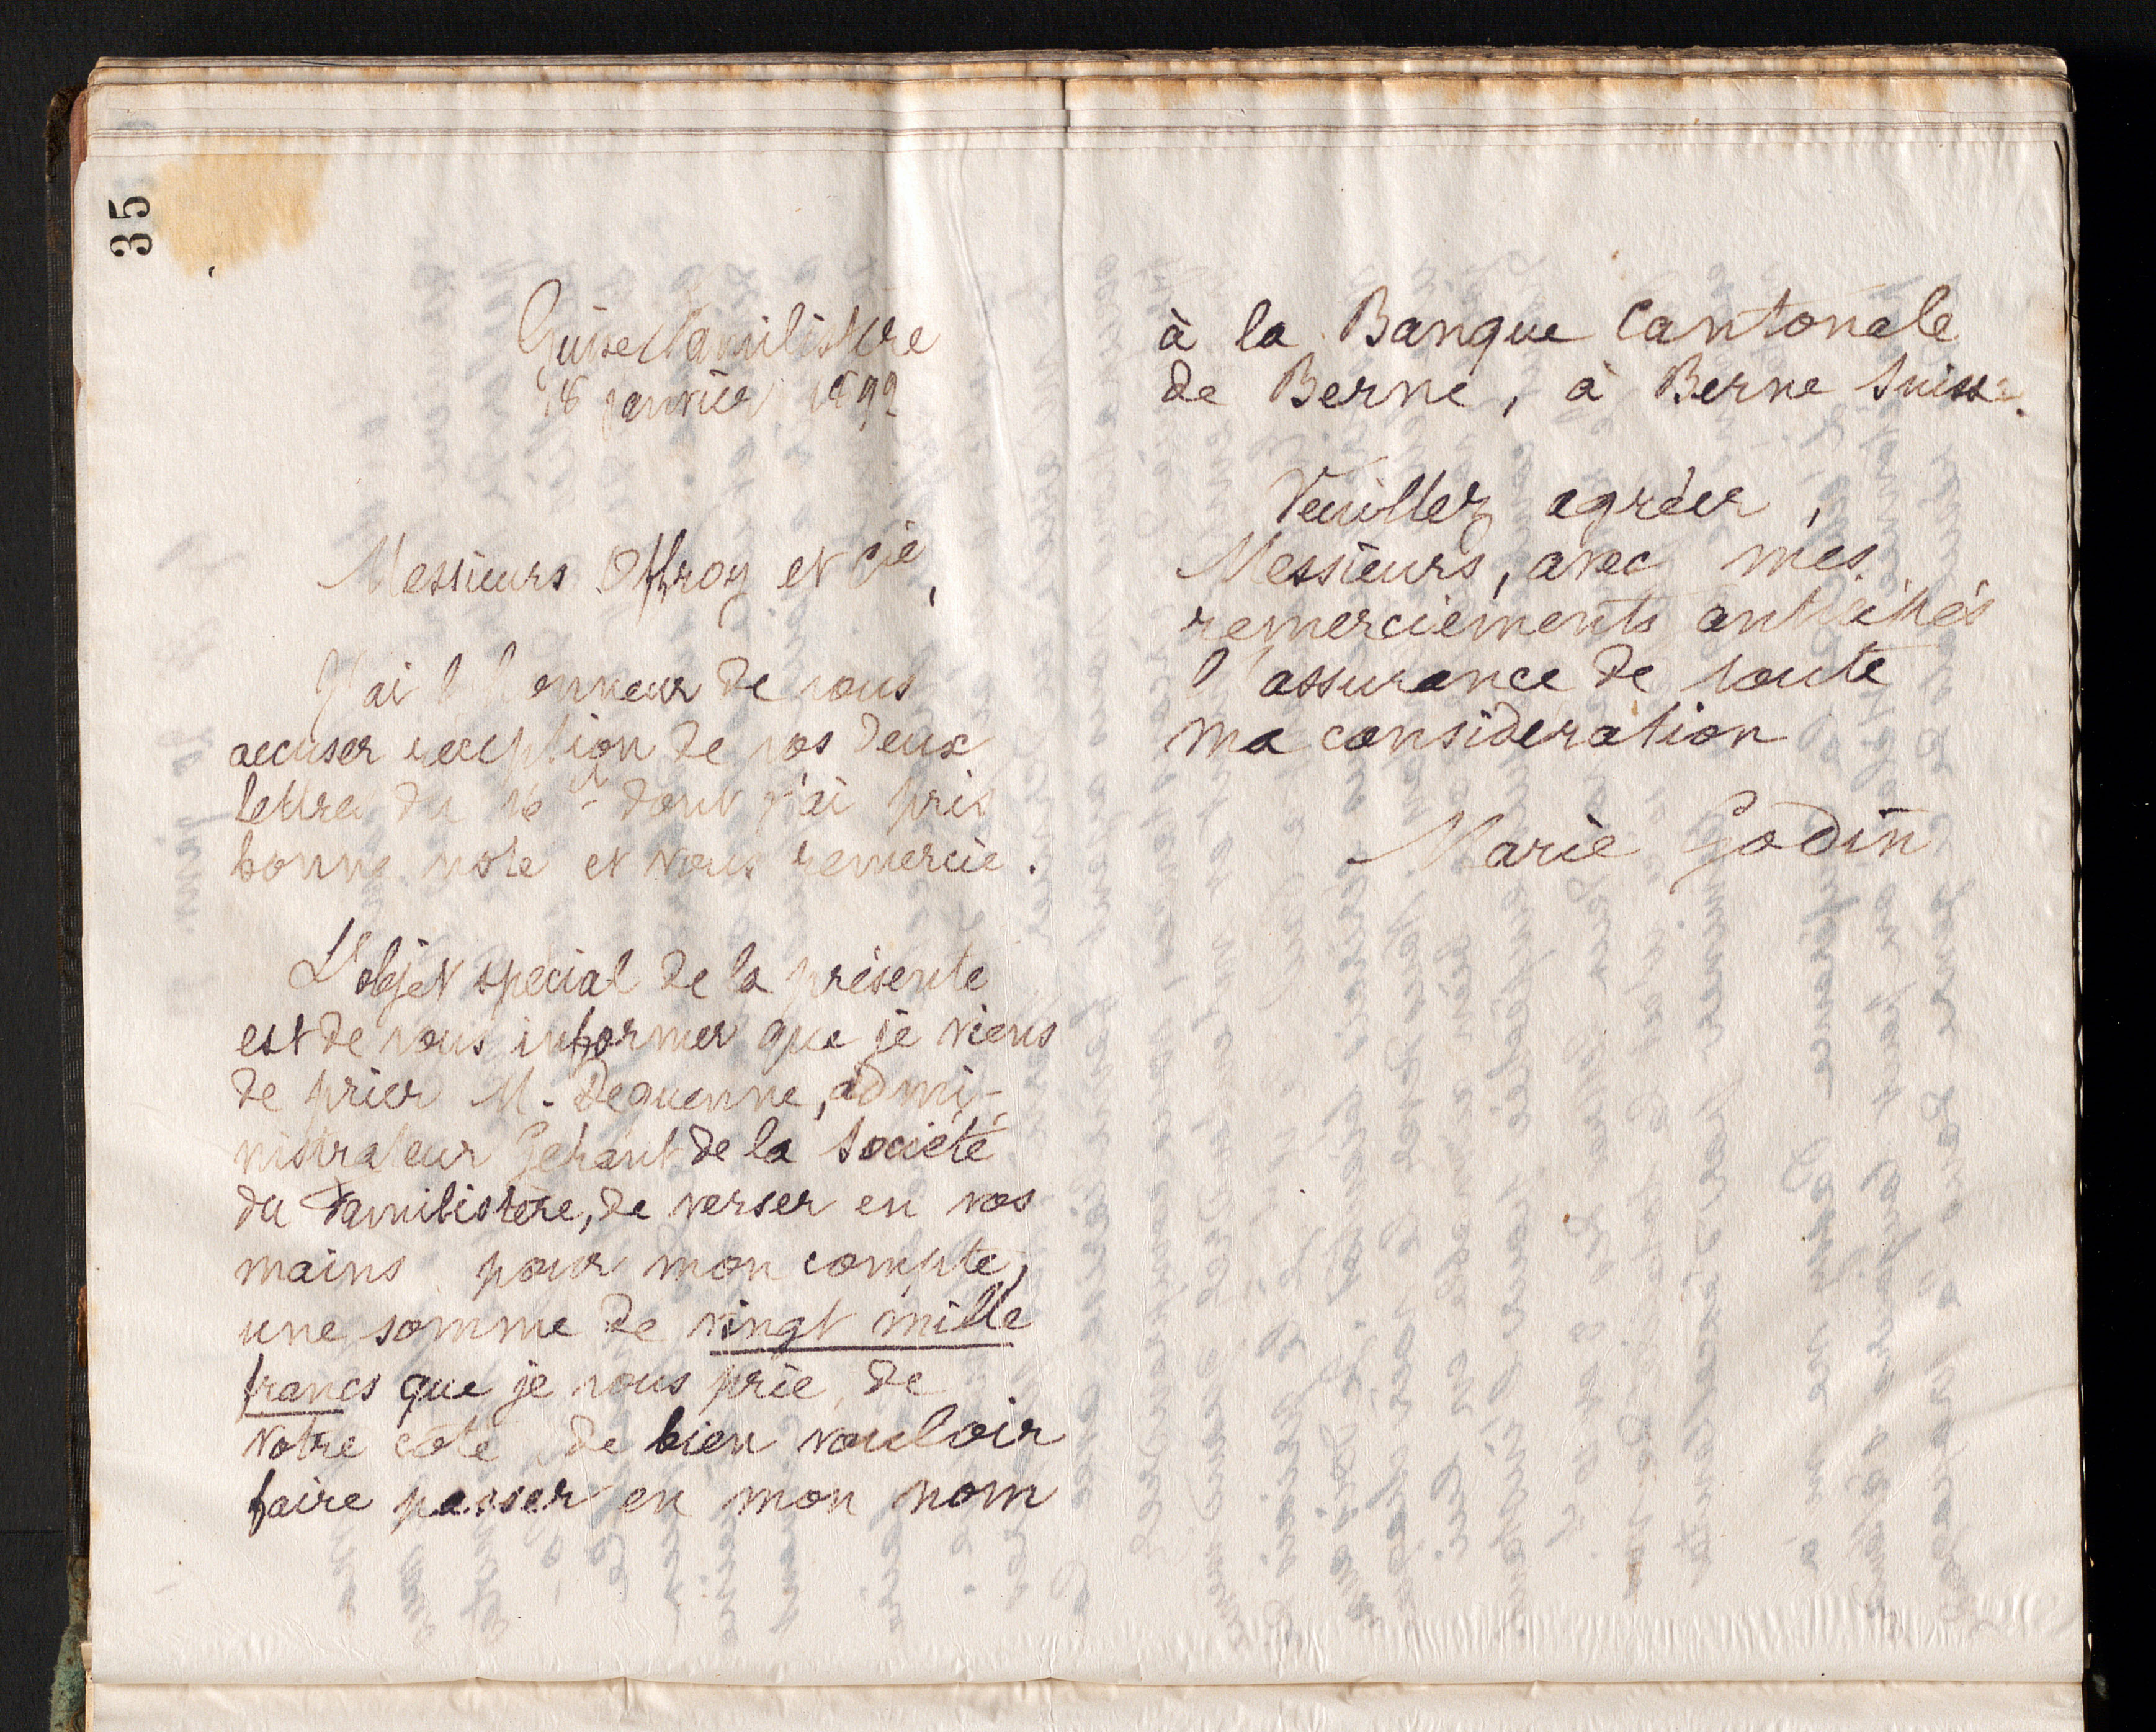 35
Guise Familistère
18 janvier 1892
Messieurs Offroy et Cie,
J'ai l'honneur de vous
accuser réception de vos deux
lettres du 16 ct dont j'ai pris
bonne note et vous remercie.
L'objet spécial de la présente
est de vous informer que je viens
de prier M. Dequenne, admi-
nistrateur Gérant de la Société
du Familistère, de verser en vos
mains pour mon compte,
une somme de vingt mille
francs que je vous prie, de
votre côté de bien vouloir
faire passer en mon nom
à la Banque Cantonale
de Berne, à Berne Suisse.
Veuillez agréer,
Messieurs, avec mes
remerciements anticipés
l'assurance de toute
ma considération
Marie Godin